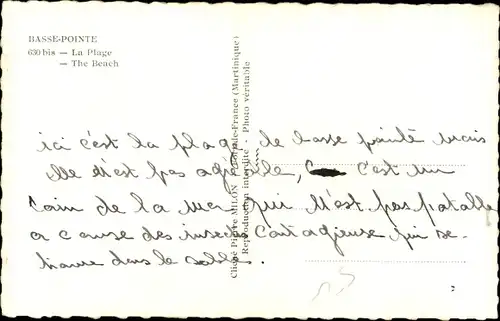 BASSE-POINTE
630 bis — La Plage
— The Beach
Cliché Pierre MILON Fort-de-France (Martinique)
Reproduction interdite - Photo véritable
ici c'est la plage de basse pointe mais
elle n'est pas agréable, c'est un
coin de la mer qui n'est pas potable
a cause des insectes contagieuse qui se-
trouve dans le sable.